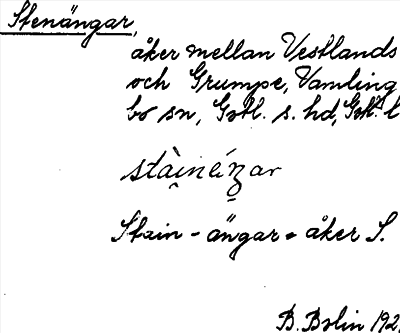 Stenängar,
åker mellan Vestlands
och Grumpe, Vamling
bo sn, Gotl. s. hd, Gotl. l
stàinéŋar
Stain - ängar = åker S.
B. Bolin 192